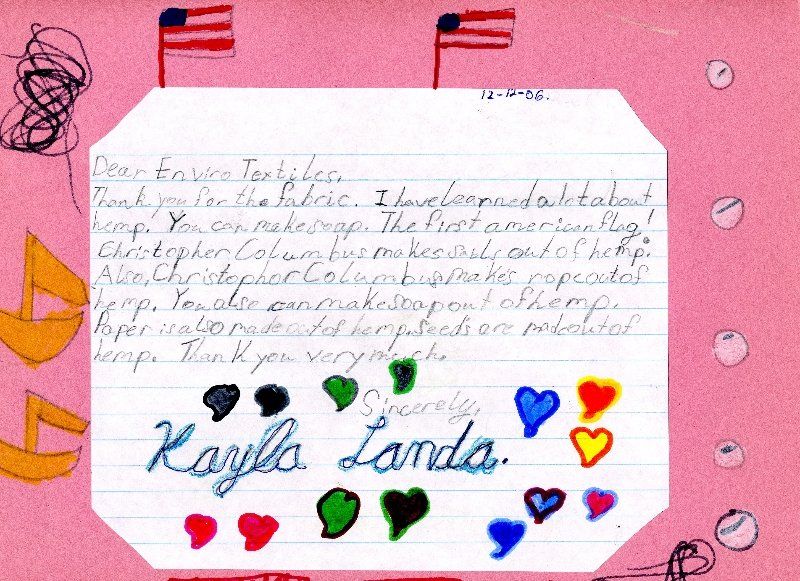 12-12-06.
Dear Enviro Textiles,
Thank you for the fabric. I have learned a lot about
hemp. You can make soap. The first american flag!
Christopher Columbus makes sails out of hemp.
Also, Christophor Columbus makes rope out of
hemp. You also can make soap out of hemp.
Paper is also made out of hemp. Seeds are made out of
hemp. Thank you very much.
Sincerely,
Kayla Landa.